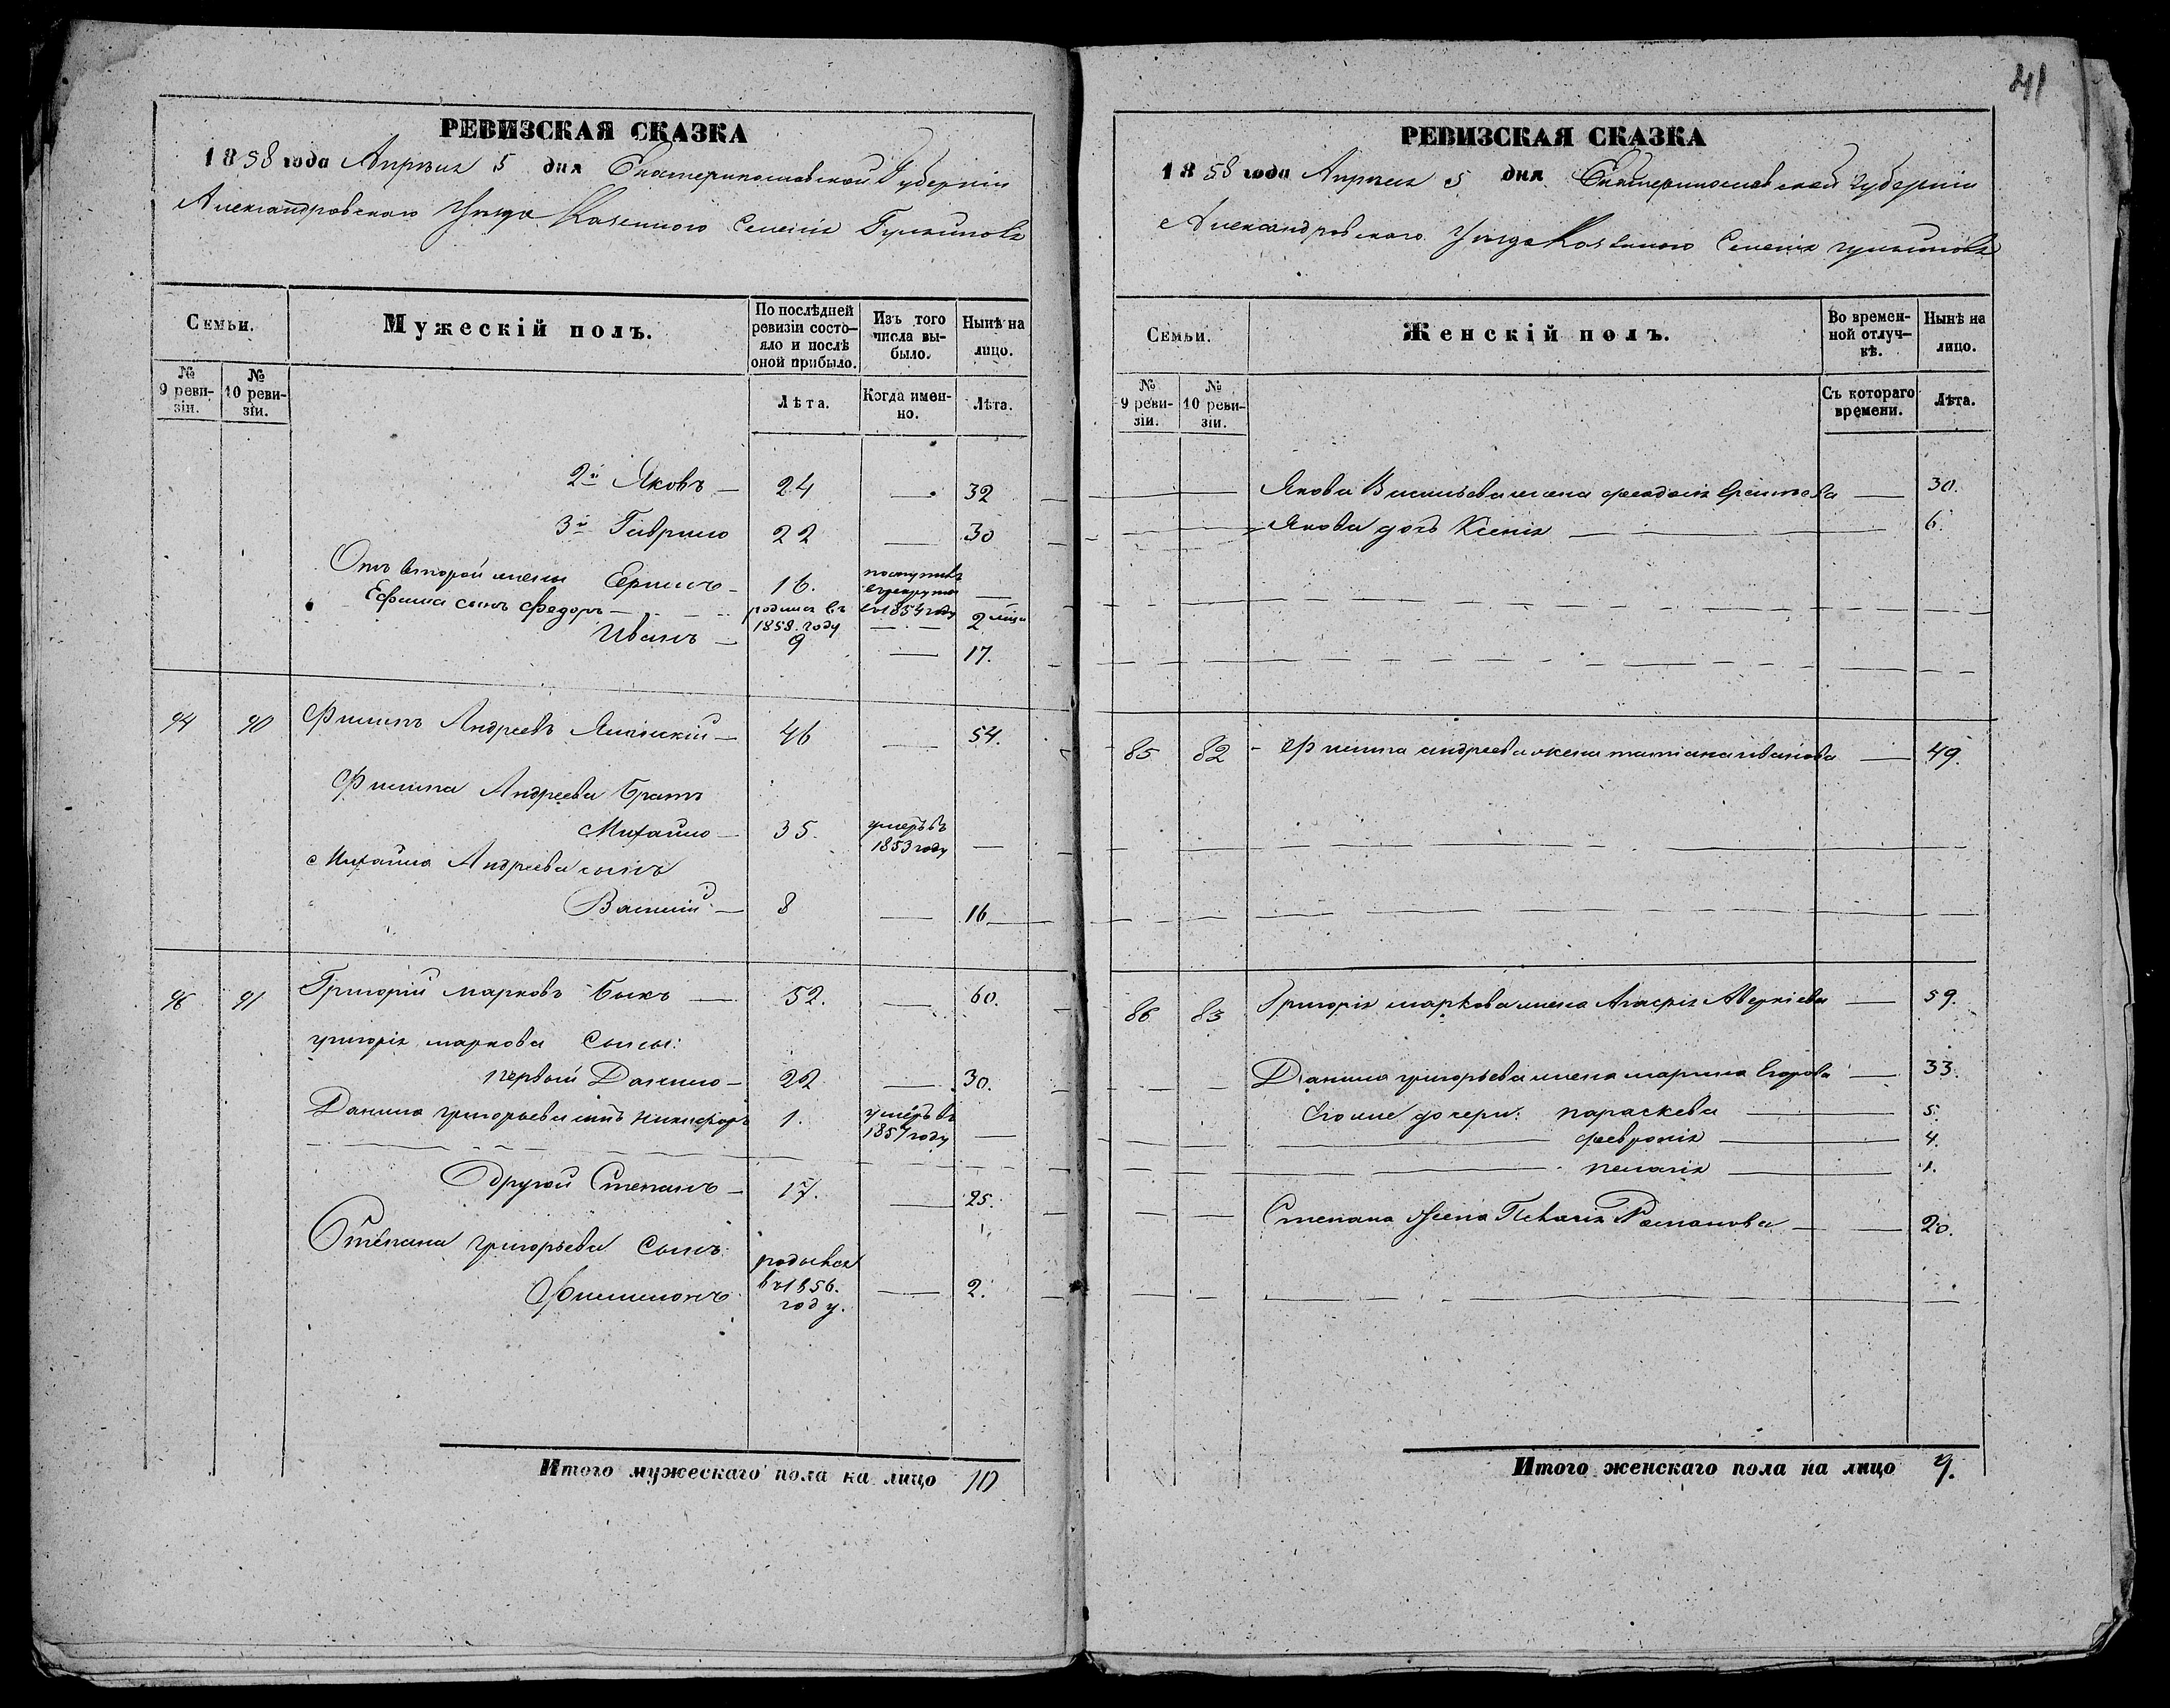 41
РЕВИЗСКАЯ СКАЗКА
1858 года Апреля 5 дня Екатеринославской Губерніи
Александровскаго Уезда Казенного Селенія Гуляиполя
Семьи.
Мужескій полъ.
По послѣдней ревизіи состо-
яло и послѣ
оной прибыло.
Изъ того
числа вы-
было.
Нынѣ на
лицо.
№
9 реви-
зіи.
№
10 реви-
зіи.
Лѣта.
Когда имен-
но.
Лѣта.
2й Яковъ — 24 — 32
3й Гаврило 22 — 30
Отъ второй жены Ермилъ — 16. поступилъ
в рекруты
въ 1854 году —
Ефима сынъ Федоръ — родился въ
1858 году — 2 мѣся
Иванъ — 9 — 17.
94 90 Филипъ Андреевъ Липскій — 46 — 54.
Филипа Андреева братъ
Михайло — 35. умеръ въ
1853 году —
Михайла Андреева сынъ
Василій — 8 — 16
96 91 Григорій Марковъ Быкъ — 52. — 60.
григорія маркова Сыны:
первый Данило — 22 — 30.
Данила григорьева сынъ никифоръ 1. умеръ въ
1851 году —
другой Степанъ — 17. — 25.
Степана григорьева Сынъ:
Филимонъ родился
въ 1856.
году. — 2.
Итого мужескаго пола на лицо 10
РЕВИЗСКАЯ СКАЗКА
1858 года Апреля 5 дня Екатеринославской губерніи
Александровскаго Уезда Казенного Селенія гуляиполя
Семьи.
Женскій полъ.
Во времен-
ной отлуч-
кѣ.
Нынѣ на
лицо.
№
9 реви-
зіи.
№
10 реви-
зіи.
Съ котораго
времени.
Лѣта.
Якова Васильева жена феодосія — 30.
Якова дочь Ксенія — 6.
85 82 Филипа андреева жена татіана иванова — 49.
86 83 Григорія маркова жена Агафія Аверкіева — 59.
Данила григорьева жена марина Егорова — 33.
Его же дочери: параскева — 5.
февронія — 4.
пелагія — 1.
Степана жена Пелагія Романова — 20.
Итого женскаго пола на лицо 9.